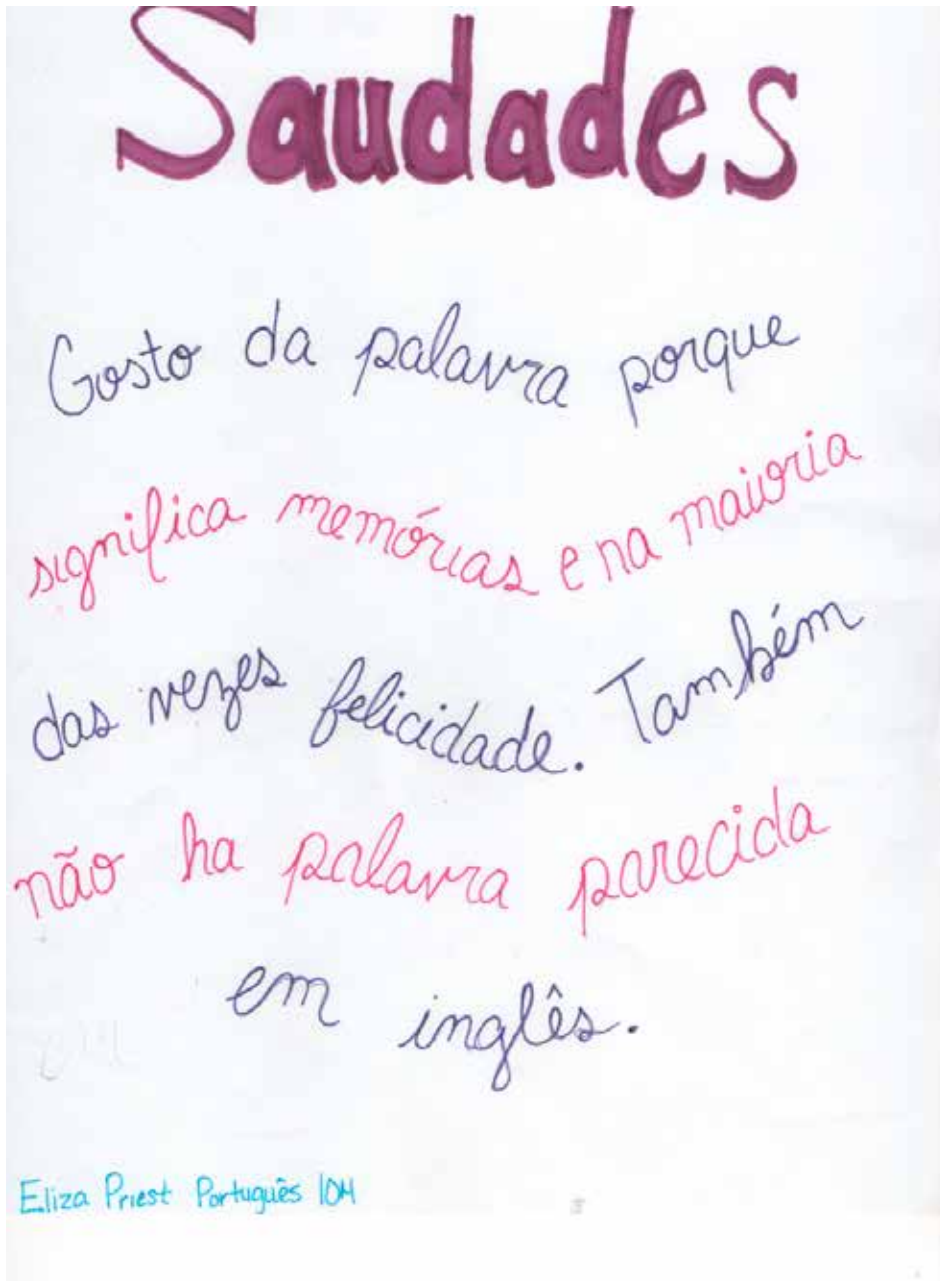 Saudades
Gosto da palavra porque
significa memórias e na maioria
das vezes felicidade. Também
não ha palavra parecida
em inglês.
Eliza Priest Português 10H